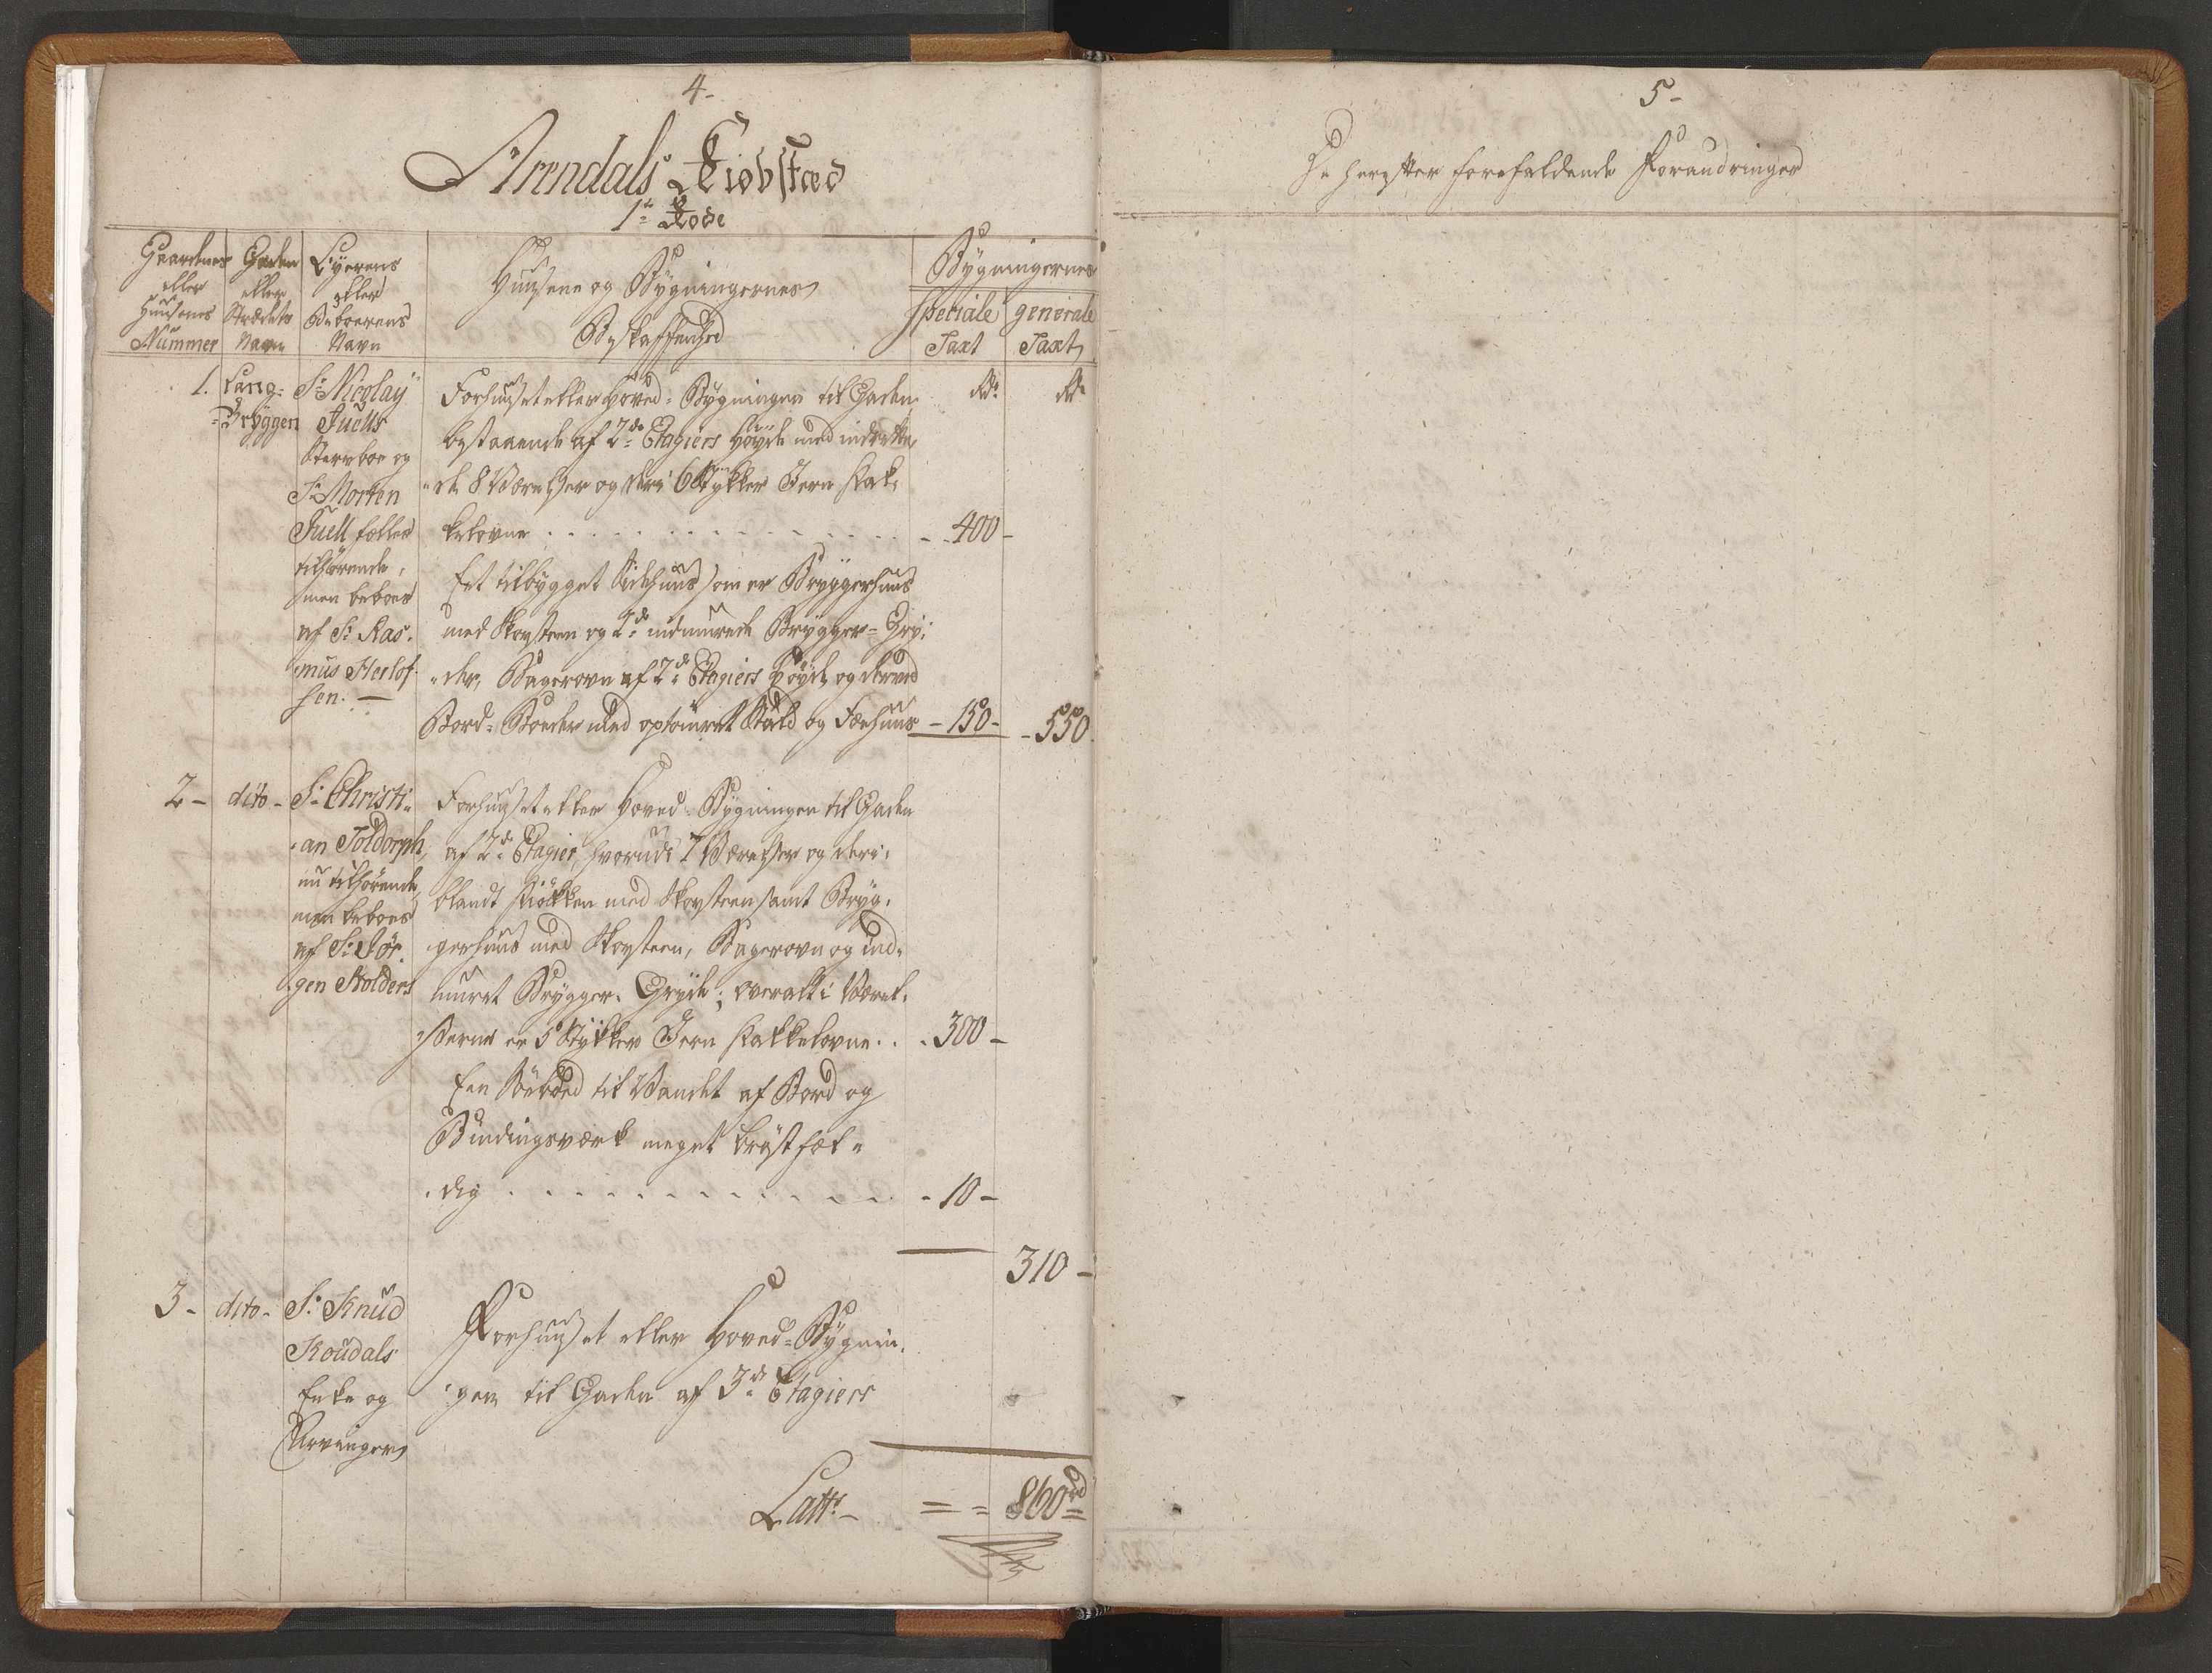 4-
Arendals Kiöbstæd
1te Rode
Gaardenes eller Huusenes Nummer
Gaden eller Strædets Navn
Eyerens eller Beboerens Navn
Huusene og Bygningernes Beskaffenhed
Bygningernes
speciale Taxt
generale Taxt
1.
Lang-
-Bryggen
Sr Nicolay
Juells
Stervboe og
Sr Morten
Juell fælles
tilhørende,
men beboes
af Sr Ras-
mus Herlof-
sen. —
Forhuuset eller Hoved-Bygningen til Gaden
bestaaende af 2de Etagiers Høyde med indrette-
de 8 Værelser og deri 6 Stykker Jern Kak-
kelovne . . . . . . - 400 -
Eet tilbygget Sidehuus som er Bryggerhuus
med Skorsteen og 2de indmurede Brygger-Gry-
der, Bagerovn af 2de Etagiers Høyde og derved
Bord-Boeder med optømret Stald og Fæehuus - 150 - - 550.
2 -
dito -
Sr Christi-
an Toldorph
nu tilhørende,
men beboes
af Sr Jör-
gen Holders
Forhuuset eller Hoved-Bygningen til Gaden
af 2de Etagier, hvorudi 7 Værelser og deri-
blandt Kiökken med Skorsteen samt Bryg-
gerhuus med Skorsteen, Bagerovn og ind-
muret Brygger-Gryde; overalt i Værel-
serne er 5 Stykker Jern Kakkelovne . . . 300 -
Een Søeboed til Vandet af Bord og
Bindingsværk meget bröstfæl-
dig . . . . . . - 10 -
310 -
3 -
dito -
Sr Knud
Koudals
Enke og
Arvinger
Forhuuset eller Hoved-Bygnin-
gen til Gaden af 3de Etagiers
Latts - = = 860 rd
5-
De herefter forefaldende Forandringer